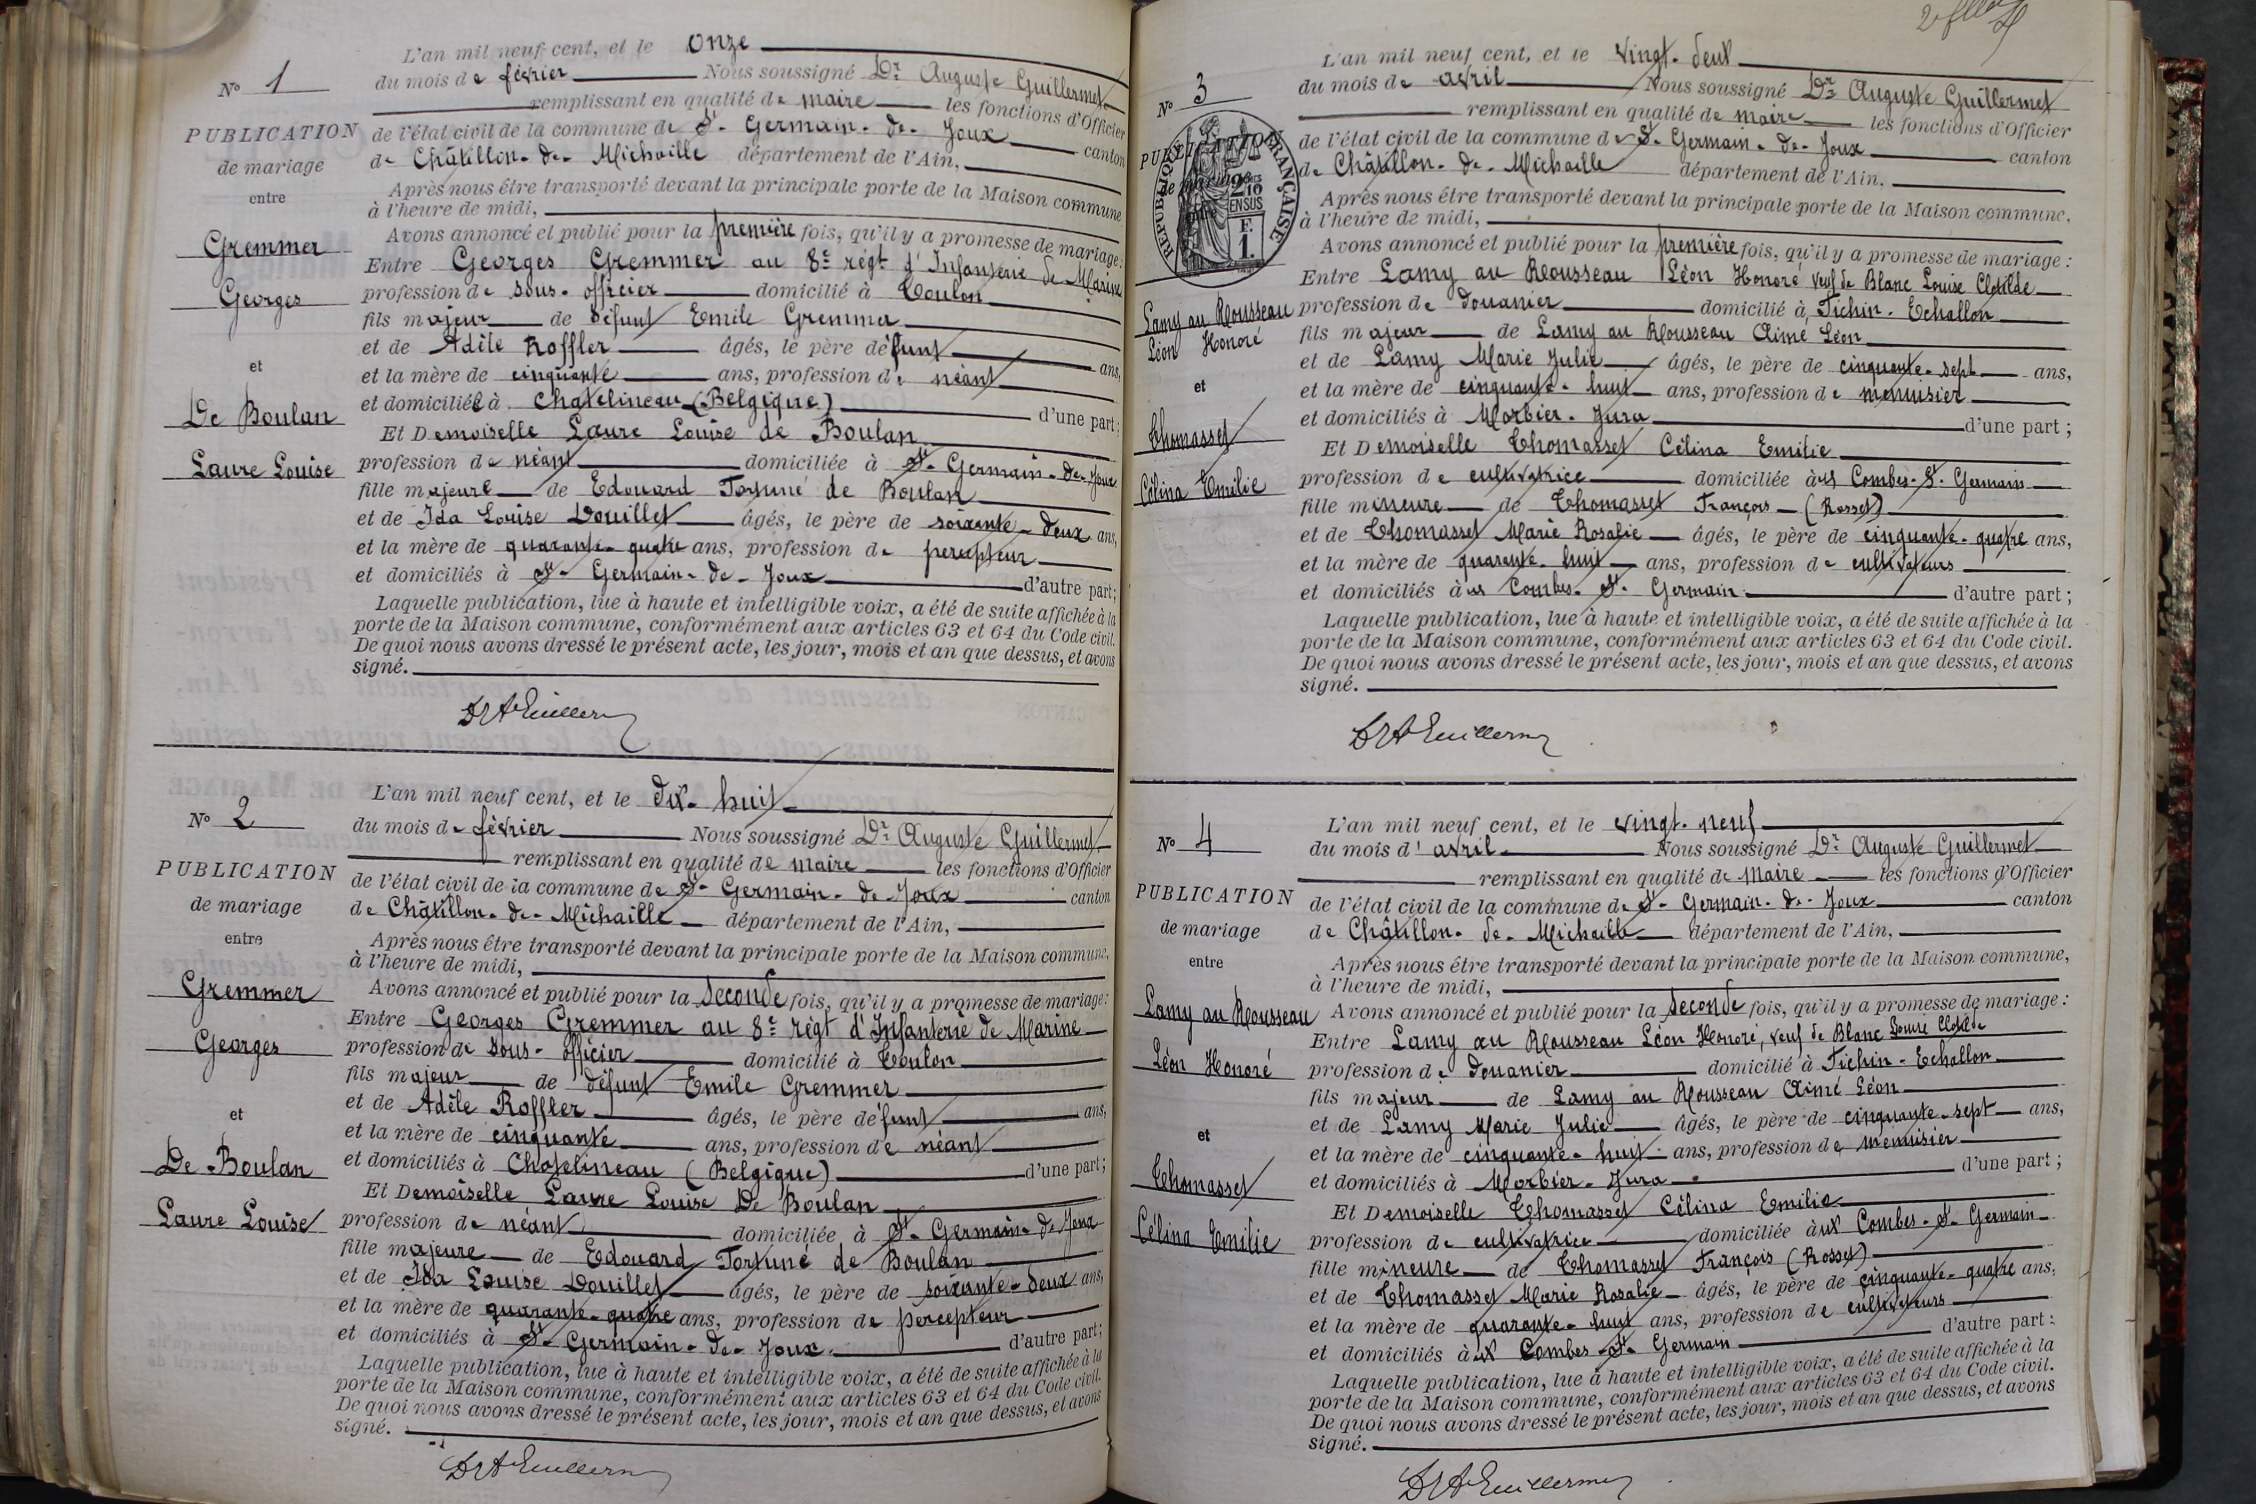 L'an mil neuf cent, et le onze
N° 1
du mois de février Nous soussigné Dr Auguste Guillermet
remplissant en qualité de maire les fonctions d'Officier
PUBLICATION
de mariage
entre
Gremmer
Georges
et
De Boulan
Laure Louise
de l'état civil de la commune de St- Germain- de- Joux canton
de Châtillon- de- Michaille département de l'Ain,
Après nous être transporté devant la principale porte de la Maison commune
à l'heure de midi,
Avons annoncé et publié pour la première fois, qu'il y a promesse de mariage:
Entre Georges Gremmer au 8e régt d'Infanterie de Marine
profession de sous- officier domicilié à Toulon
fils majeur de défunt Emile Gremmer
et de Adèle Roffler âgés, le père défunt ans,
et la mère de cinquante ans, profession de néant
et domiciliés à Chatelineau (Belgique) d'une part;
Et Demoiselle Laure Louise de Boulan
profession de néant domiciliée à St- Germain- de- Joux
fille majeure de Edouard Fortuné de Boulan
et de Ida Louise Douillet âgés, le père de soixante- deux ans,
et la mère de quarante- quatre ans, profession de percepteur
et domiciliés à St- Germain- de- Joux d'autre part;
Laquelle publication, lue à haute et intelligible voix, a été de suite affichée à la
porte de la Maison commune, conformément aux articles 63 et 64 du Code civil.
De quoi nous avons dressé le présent acte, les jour, mois et an que dessus, et avons
signé.
L'an mil neuf cent, et le dix- huit
N° 2
du mois de février Nous soussigné Dr Auguste Guillermet
remplissant en qualité de maire les fonctions d'Officier
PUBLICATION
de mariage
entre
Gremmer
Georges
et
De Boulan
Laure Louise
de l'état civil de la commune de St- Germain- de- Joux canton
de Châtillon- de- Michaille département de l'Ain,
Après nous être transporté devant la principale porte de la Maison commune,
à l'heure de midi,
Avons annoncé et publié pour la seconde fois, qu'il y a promesse de mariage:
Entre Georges Gremmer au 8e régt d'Infanterie de Marine
profession de sous- officier domicilié à Toulon
fils majeur de défunt Emile Gremmer
et de Adèle Roffler âgés, le père défunt ans,
et la mère de cinquante ans, profession de néant
et domiciliés à Chatelineau (Belgique) d'une part;
Et Demoiselle Laure Louise De Boulan
profession de néant domiciliée à St- Germain- de Joux
fille majeure de Edouard Fortuné de Boulan
et de Ida Louise Douillet âgés, le père de soixante- deux ans,
et la mère de quarante- quatre ans, profession de percepteur
et domiciliés à St- Germain- de- Joux. d'autre part;
Laquelle publication, lue à haute et intelligible voix, a été de suite affichée à la
porte de la Maison commune, conformément aux articles 63 et 64 du Code civil.
De quoi nous avons dressé le présent acte, les jour, mois et an que dessus, et avons
signé.
L'an mil neuf cent, et le vingt- deux
N° 3
du mois de avril Nous soussigné Dr Auguste Guillermet
remplissant en qualité de maire les fonctions d'Officier
PUBLICATION
de mariage
entre
RÉPUBLIQUE FRANÇAISE
2/10
EN SUS
F.
1.
Lamy au Rousseau
Léon Honoré
et
Thomasset
Célina Emilie
de l'état civil de la commune de St- Germain- de- Joux canton
de Châtillon- de- Michaille département de l'Ain,
Après nous être transporté devant la principale porte de la Maison commune,
à l'heure de midi,
Avons annoncé et publié pour la première fois, qu'il y a promesse de mariage:
Entre Lamy au Rousseau Léon Honoré veuf de Blanc Louise Clotilde
profession de douanier domicilié à Tichin- Echallon
fils majeur de Lamy au Rousseau Aimé Léon
et de Lamy Marie Julie âgés, le père de cinquante- sept ans,
et la mère de cinquante- huit ans, profession de menuisier
et domiciliés à Morbier- Jura d'une part;
Et Demoiselle Thomasset Célina Emilie
profession de cultivatrice domiciliée aux Combes- St- Germain
fille mineure de Thomasset François (Rosset)
et de Thomasset Marie Rosalie âgés, le père de cinquante- quatre ans,
et la mère de quarante- huit ans, profession de cultivateurs
et domiciliés aux Combes- St- Germain d'autre part;
Laquelle publication, lue à haute et intelligible voix, a été de suite affichée à la
porte de la Maison commune, conformément aux articles 63 et 64 du Code civil.
De quoi nous avons dressé le présent acte, les jour, mois et an que dessus, et avons
signé.
L'an mil neuf cent, et le vingt- neuf
N° 4
du mois d'avril Nous soussigné Dr Auguste Guillermet
remplissant en qualité de Maire les fonctions d'Officier
PUBLICATION
de mariage
entre
Lamy au Rousseau
Léon Honoré
et
Thomasset
Célina Emilie
de l'état civil de la commune de St- Germain- de- Joux canton
de Châtillon- de- Michaille département de l'Ain,
Après nous être transporté devant la principale porte de la Maison commune,
à l'heure de midi,
Avons annoncé et publié pour la seconde fois, qu'il y a promesse de mariage:
Entre Lamy au Rousseau Léon Honoré, veuf de Blanc Louise Clotilde
profession de douanier domicilié à Tichin- Echallon
fils majeur de Lamy au Rousseau Aimé Léon
et de Lamy Marie Julie âgés, le père de cinquante- sept ans,
et la mère de cinquante- huit ans, profession de menuisier
et domiciliés à Morbier- Jura d'une part;
Et Demoiselle Thomasset Célina Emilie
profession de cultivatrice domiciliée aux Combes- St- Germain
fille mineure de Thomasset François (Rosset)
et de Thomasset Marie Rosalie âgés, le père de cinquante- quatre ans,
et la mère de quarante- huit ans, profession de cultivateurs
et domiciliés aux Combes- St- Germain d'autre part:
Laquelle publication, lue à haute et intelligible voix, a été de suite affichée à la
porte de la Maison commune, conformément aux articles 63 et 64 du Code civil.
De quoi nous avons dressé le présent acte, les jour, mois et an que dessus, et avons
signé.